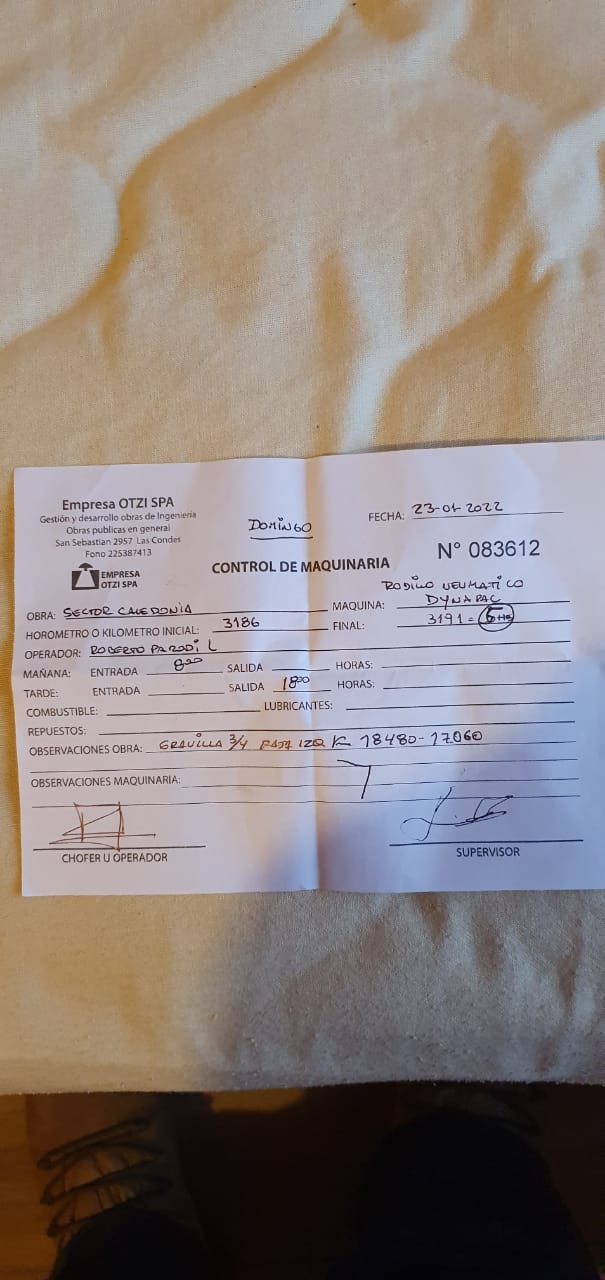 Empresa OTZI SPA
Gestión y desarrollo obras de Ingenieria
Obras publicas en general
San Sebastian 2957 Las Condes
Fono 225387413
EMPRESA
OTZI SPA
DOMINGO
FECHA: 23-01-2022
N° 083612
CONTROL DE MAQUINARIA
RODILLO NEUMATICO
OBRA: SECTOR CALEDONIA MAQUINA: DYNAPAC
HOROMETRO O KILOMETRO INICIAL: 3186 FINAL: 3191 = 5 HS
OPERADOR: ROBERTO PARODI L
MAÑANA: ENTRADA 8:00 SALIDA HORAS:
TARDE: ENTRADA SALIDA 18:00 HORAS:
COMBUSTIBLE: LUBRICANTES:
REPUESTOS:
OBSERVACIONES OBRA: GRAVILLA 3/4 FAJA IZQ K 18480-17060
OBSERVACIONES MAQUINARIA:
CHOFER U OPERADOR SUPERVISOR